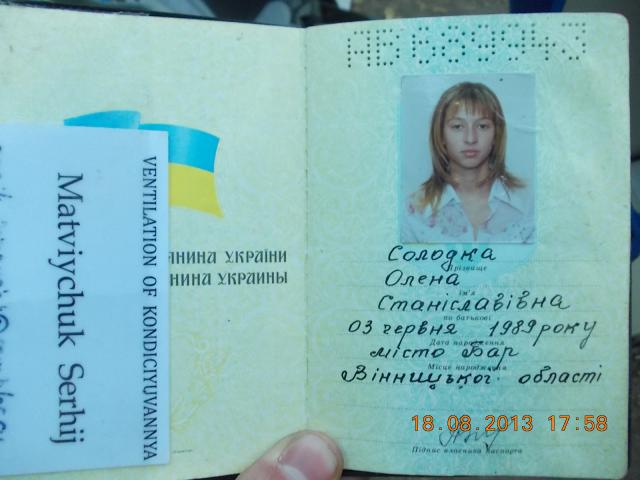 VENTILATION OF KONDICIYUVANNYA
Matviychuk Serhij
АНИНА УКРАЇНИ
НИНА УКРАИНЫ
Солодка
Прізвище
Олена
ім'я
Станіславівна
по батькові
03 червня 1989 року
Дата народження
місто Бар
Місце народження
Вінницької області
18.08.2013 17:58
Підпис власника паспорта